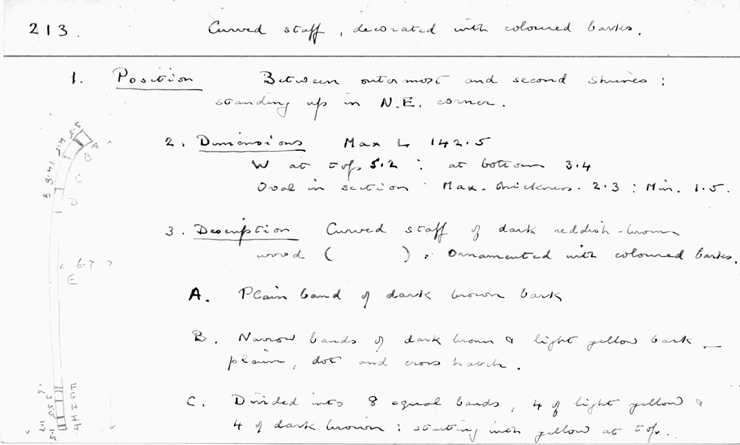 213. Curved staff, decorated with coloured barks.
1. Position Between outermost and second shrines:
standing up in N.E. corner.
2. Dimensions Max L 142.5
W at top 5.2 : at bottom 3.4
Oval in section : Max. thickness. 2.3 : Min. 1.5.
3. Description Curved staff of dark reddish-brown
wood ( ). Ornamented with coloured barks.
A. Plain band of dark brown bark
B. Narrow bands of dark brown & light yellow bark –
plain, dot and cross hatch.
C. Divided into 8 equal bands, 4 of light yellow &
4 of dark brown : starting with yellow at top.
A
B
C
D
6.7
E